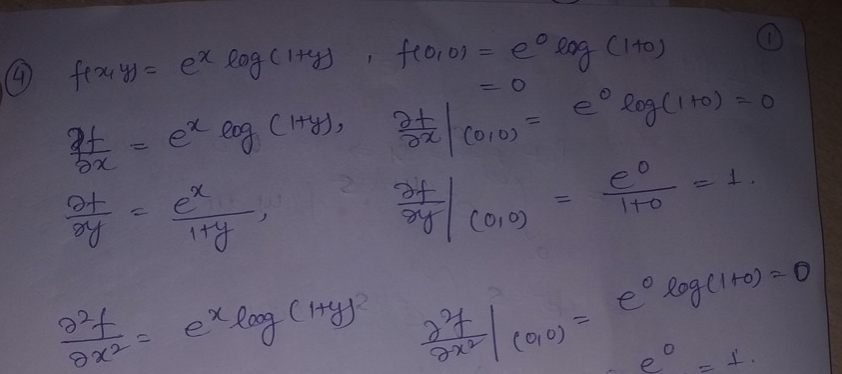 ④ f(x,y) = e^x log(1+y) , f(0,0) = e^0 log(1+0) ①
= 0
∂f/∂x = e^x log(1+y), ∂f/∂x|(0,0) = e^0 log(1+0) = 0
∂f/∂y = e^x/(1+y), ∂f/∂y|(0,0) = e^0/(1+0) = 1.
∂²f/∂x² = e^x log(1+y) ∂²f/∂x²|(0,0) = e^0 log(1+0) = 0
e^0 = 1.